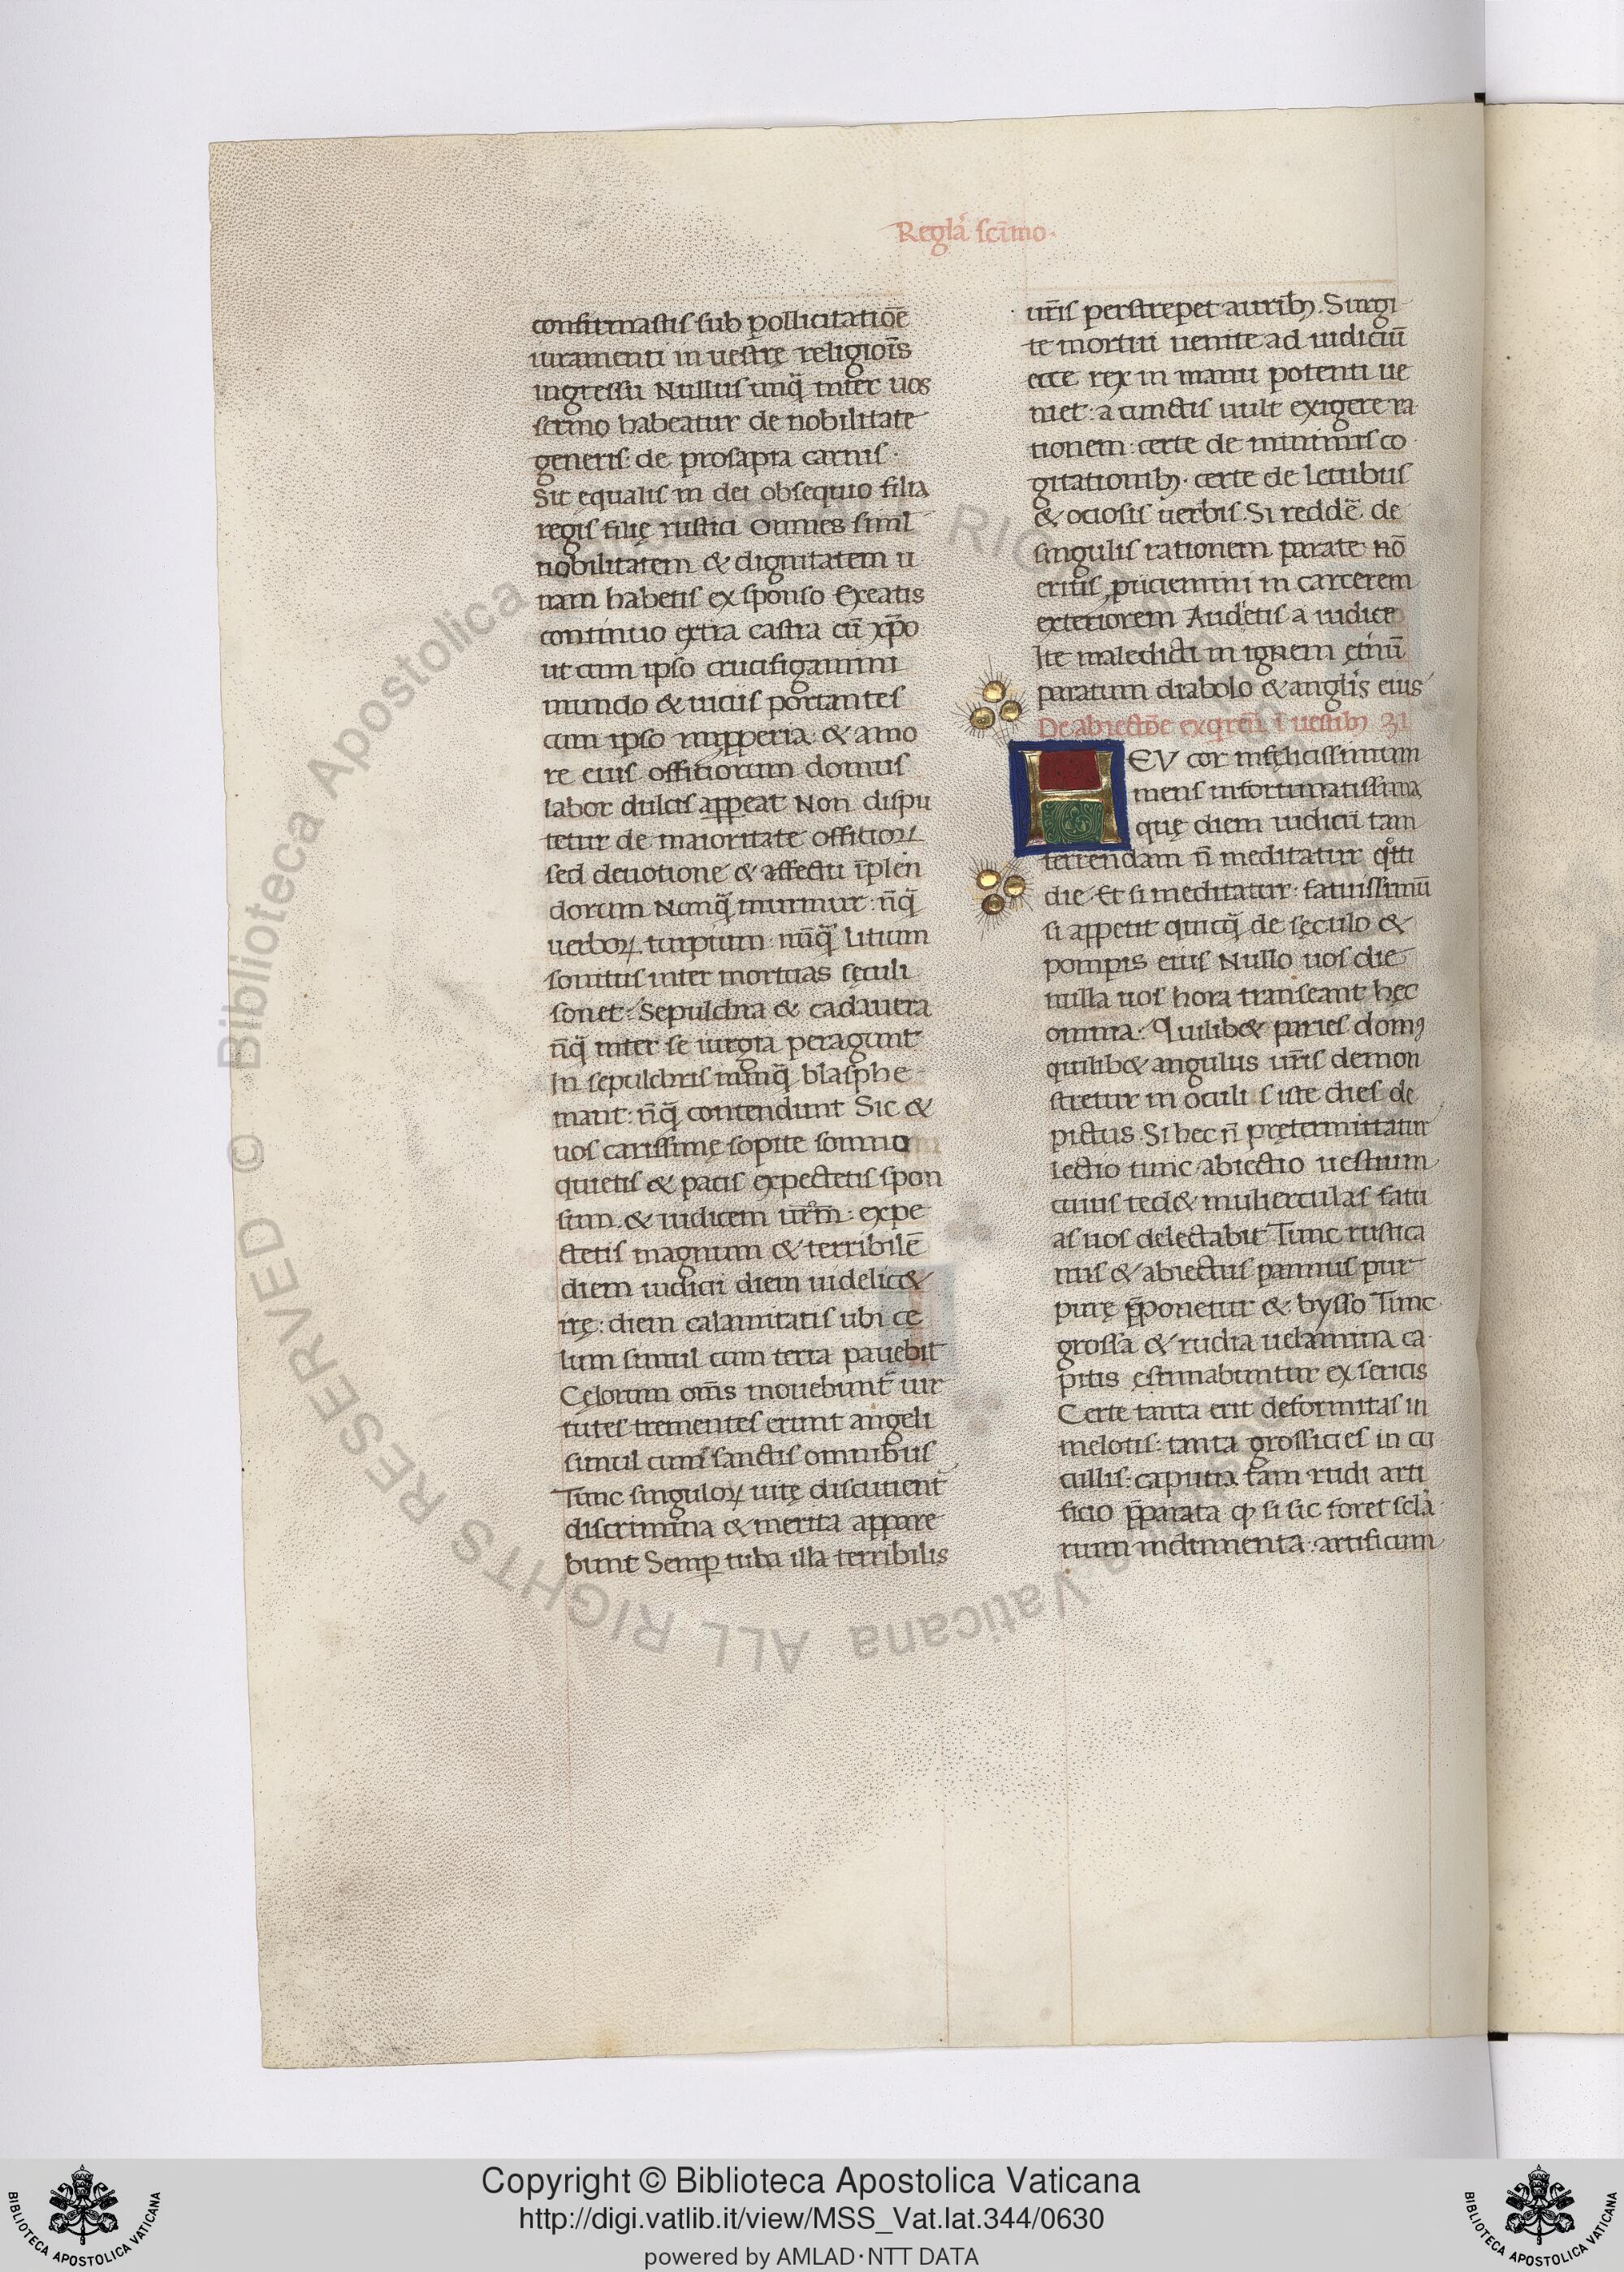 Reglā scimo.
confirmastis sub pollicitatiōe
iuramenti in uestrę religiōis
ingressu Nullus unq̄ inter uos
sermo habeatur de nobilitate
generis: de prosapia carnis.
Sit equalis in dei obsequio filia
regis filię rustici Omnes simul
nobilitatem & dignitatem u
nam habetis ex sponso Exeatis
continuo extra castra cū xp̄o
ut cum ipso crucifigamini
mundo & uiciis portantes
cum ipso impperia: & amo
re eius offitiorum domus
labor dulcis appeat Non dispu
tetur de maioritate offitioꝝ
sed deuotione & affectu īplen
dorum Nunq̄ murmur: nq̄
uerboꝝ turpium: nūq̄ litium
sonitus inter mortuas sęculi
sonet. Sepulchra & cadauera
nq̄ inter se iurgia peragunt
In sepulchris nunq̄ blasphe
mant: nq̄ contendunt Sic &
uos carissimę sopite somno
quietis & pacis expectetis spon
sum. & iudicem ur̄m: expe
ctetis magnum & terribilē
diem iudicii diem uidelic&
irę: diem calamitatis ubi cę
lum simul cum terra pauebit
Cęlorum om̄s mouebunt᷑ uir
tutes trementes erunt angeli
simul cum sanctis omnibus
Tunc singuloꝝ uitę discutient᷑
discrimina & merita appare
bunt Semp tuba illa terribilis
ur̄is perstrepet aurib; Surgi
te mortui uenite ad iudiciū
ecce rex in manu potenti ue
niet: a cunctis uult exigere ra
tionem: certe de minimis co
gitationib; certe de leuibus
& ociosis uerbis. Si reddē de
singulis rationem parate nō
eritis, piiciemini in carcerem
exteriorem Audetis a iudice
Ite maledicti in ignem ęt̄nū
paratum diabolo & anglis eius
De abiectōe exqren i uestib; 31
HEV cor infęlicissimum
mens infortunatissima
quę diem iudicii tam
terrendam n̄ meditatur qotti
die. Et si meditatur: fatuissimū
si appetit quicq̄ de sęculo &
pompis eius Nullo uos die
nulla uos hora transeant hęc
omnia. Quilib& paries domꝰ
quilib& angulus ur̄is demon
stretur in oculis iste dies de
pictus. Si hec n̄ pretermittatur
lectio tunc abiectio uestium
cuius ted& mulierculas fatu
as uos delectabit Tunc rustica
nus & abiectus pannus pur
purę p̄ponetur & bysso Tunc
grossa & rudia uelamina ca
pitis ęstimabuntur ex sericis
Certe tanta erit deformitas in
melotis: tanta grossicies in cu
cullis: caputia tam rudi arti
ficio p̄parata ꝙ si sic foret sclā
rum indumenta: artificum
© Biblioteca Apostolica Vaticana ALL RIGHTS RESERVED
Copyright © Biblioteca Apostolica Vaticana
http://digi.vatlib.it/view/MSS_Vat.lat.344/0630
powered by AMLAD·NTT DATA
BIBLIOTECA APOSTOLICA VATICANA
BIBLIOTECA APOSTOLICA VATICANA